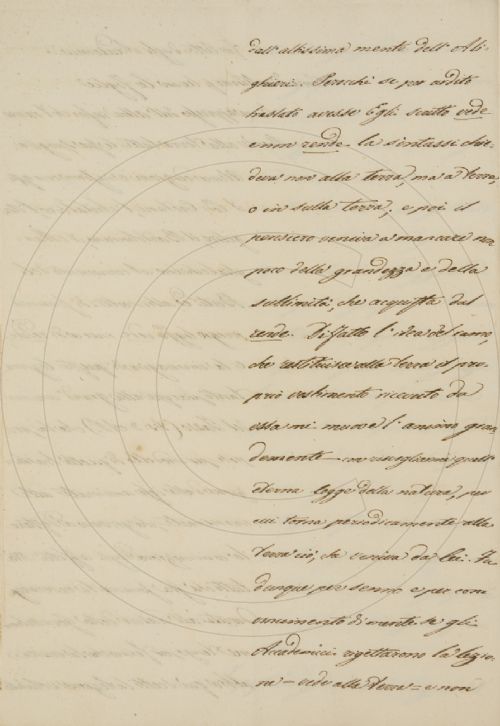 dall'altissima mente dell'Ali-
ghieri. Perocchè se per ardito
traslato avesse Egli scritto vede
e non rende, la sintassi chie-
deva non alla terra, ma a terra,
o in sulla terra; e poi il
pensiero veniva a mancare non
poco della grandezza e della
sublimità, che acquista dal
rende. Diffatto l'idea del ramo,
che restituisce alla terra il pro-
prio vestimento ricevuto da
essa mi muove l'animo gran
demente = con quell'
eterna legge della natura, per
cui torna periodicamente alla
terra ciò, che veniva da lei. Fu
dunque per senno e per con
di mente se gli
Accademici rigettarono la lezio-
ne = vede alla terra = e non